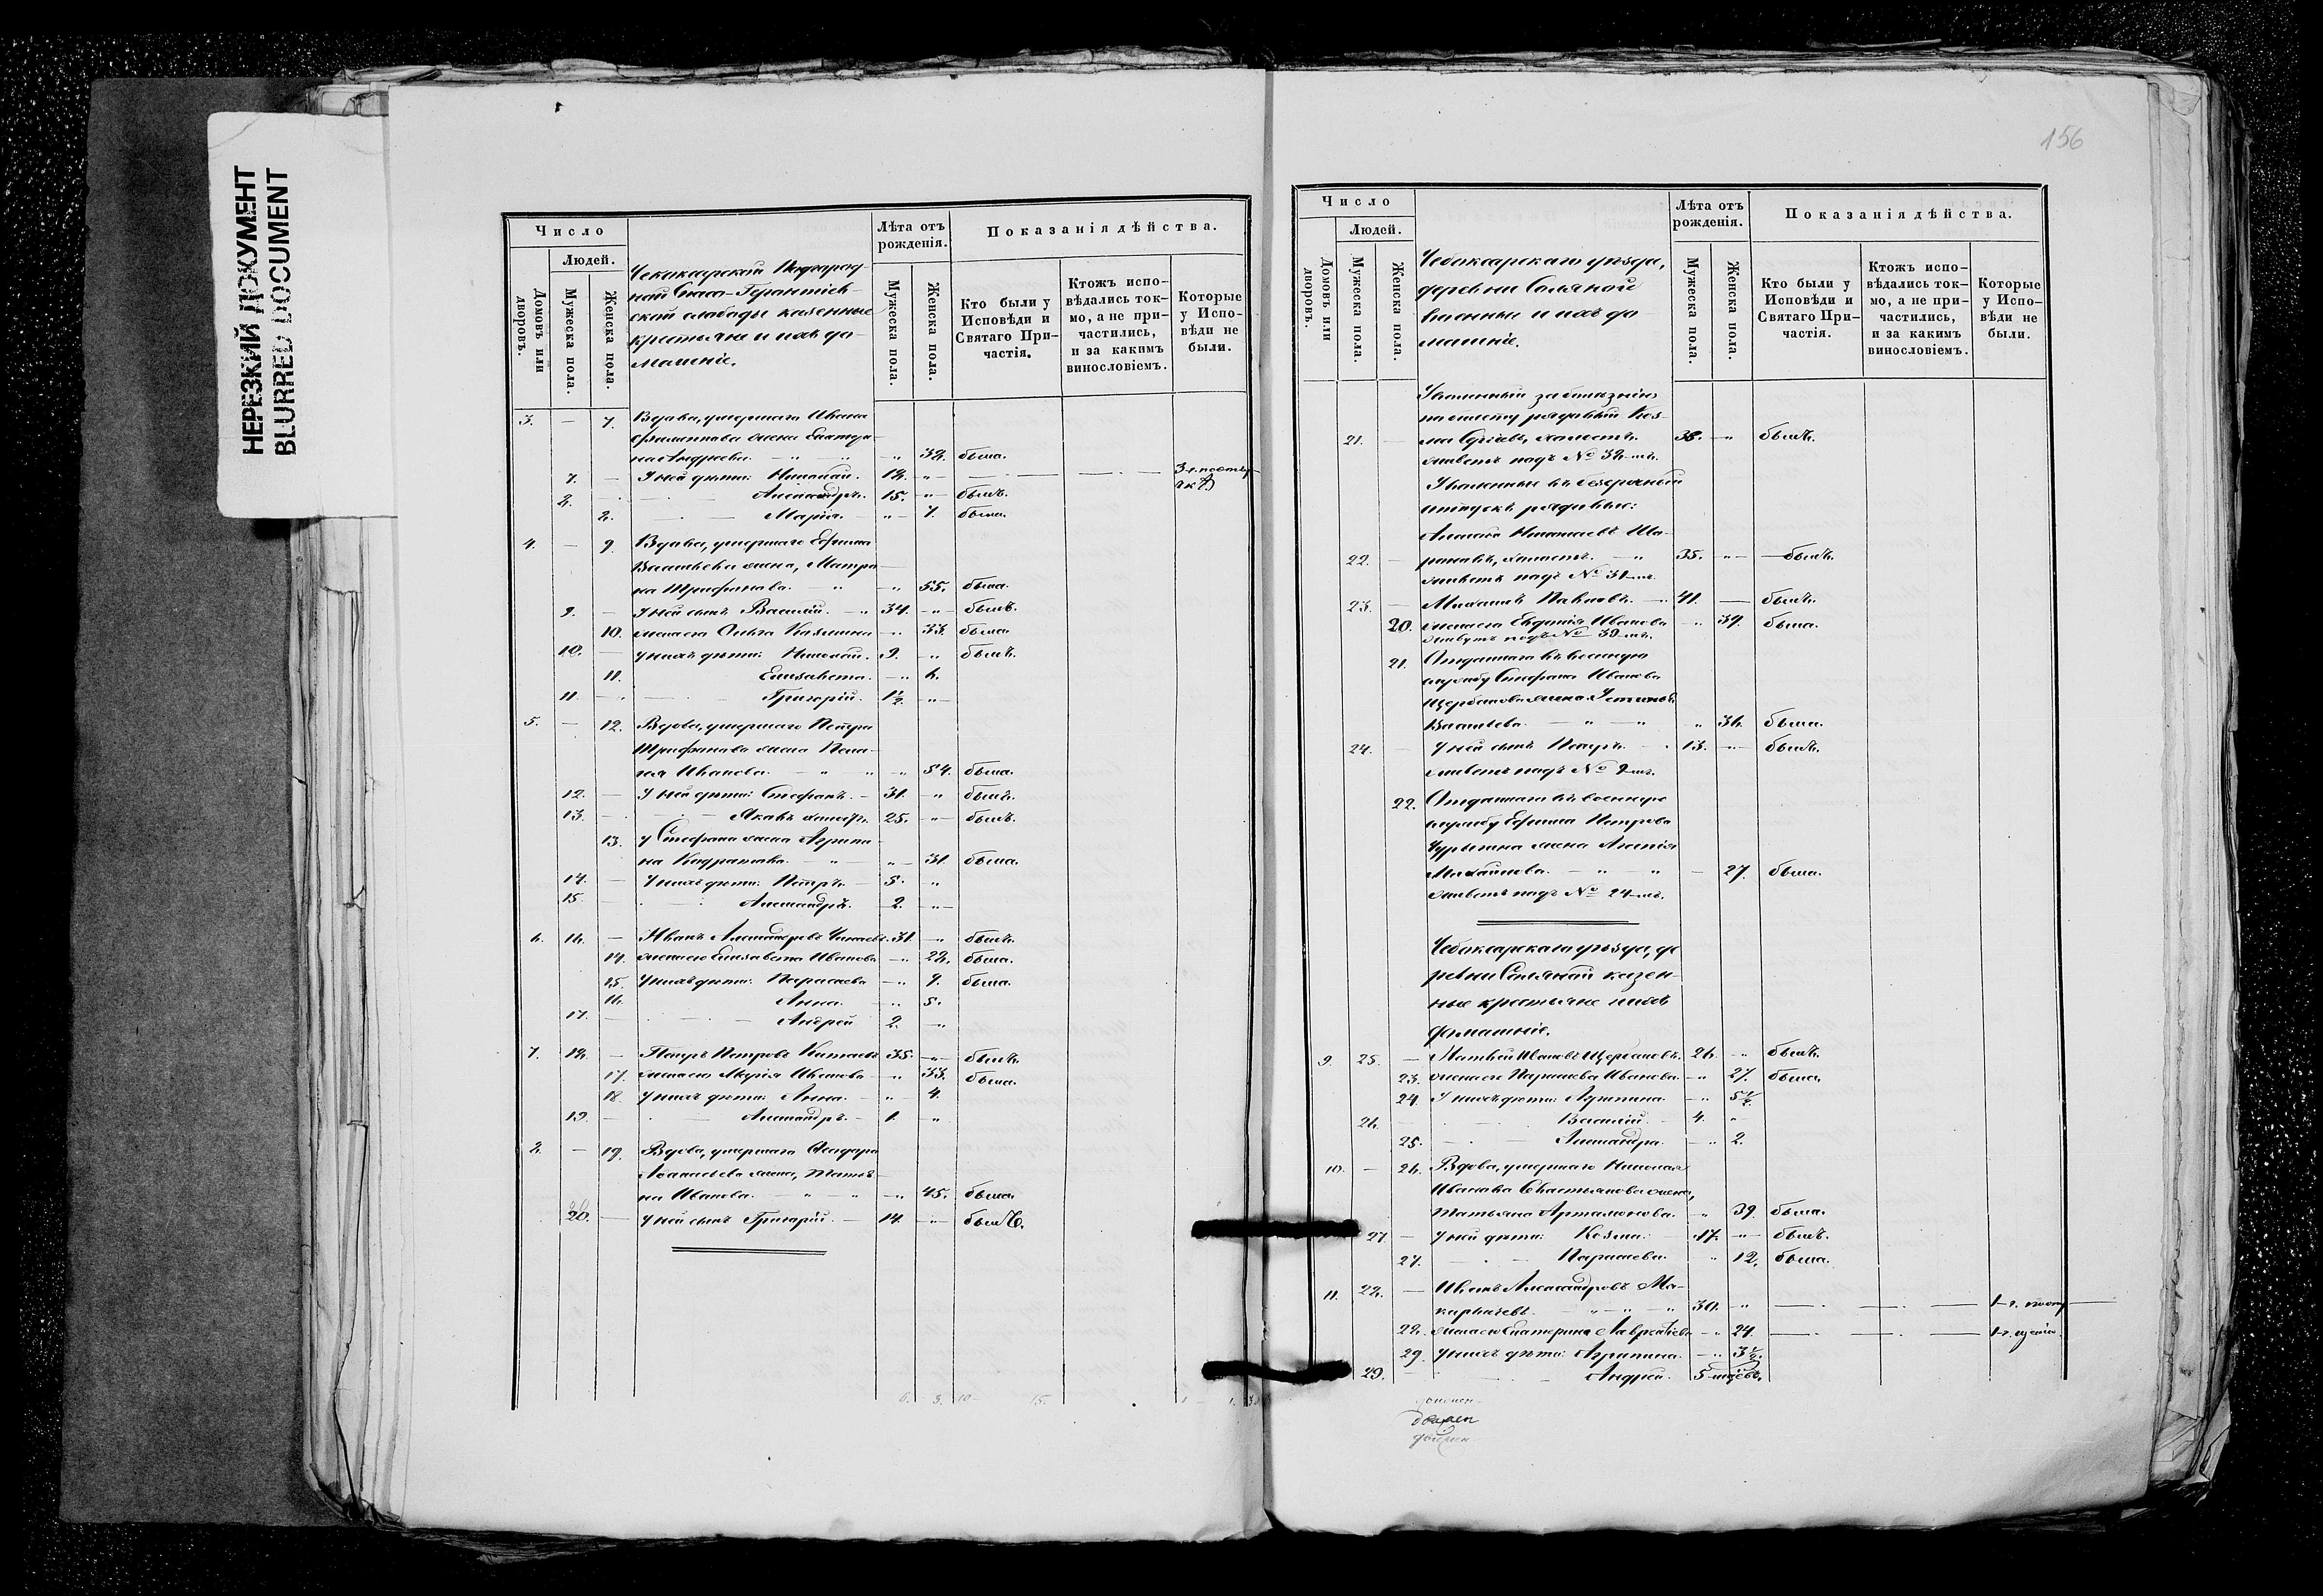 НЕРЕЗКИЙ ДОКУМЕНТ
BLURRED DOCUMENT
Число
Людей.
Домовъ или дворовъ.
Мужеска пола.
Женска пола.
Чебоксарской Подгород-
ной Спасо-Геронтіев-
ской слободы казенные
крестьяне и ихъ до-
машніе.
Лѣта отъ рожденія.
Мужеска пола.
Женска пола.
Показанія дѣйства.
Кто были у Исповѣди и Святаго При-частія.
Ктожъ испо-вѣдались ток-мо, а не при-частились, и за какимъ винословіемъ.
Которые у Испо-вѣди не были.
3. — 7. Вдова, умершаго Ивана
Филиппова жена Екатери-
на Андреева. — " — " — " 38. была.
— У ней дѣти: Николай. 18. "
2. Александръ. 15. " былъ.
Марія. " 7. была.
4. — 9. Вдова, умершаго Ефима
Васильева жена, Матре-
на Трифонова. " — " 55. была.
9. — У ней сынъ Василій. — " 34. " былъ.
10. жена его Ольга Козмина — " 33. была.
10. — У нихъ дѣти: Николай. 9. " былъ.
11. Елизавета. — " 6.
11. Григорій. 1½ "
5. — 12. Вдова, умершаго Петра
Трифонова жена Пела-
гея Иванова. — " — " — " 54. была.
12. — У ней дѣти: Стефанъ. — 31. " былъ.
13. Яковъ холостъ. 25. " былъ.
13. у Стефана жена Агрипи-
на Кодратова. — " — " 31. была.
14. — У нихъ дѣти: Петръ. — 5. "
15. Александръ. 2. "
6. 16. — Иванъ Александровъ 31. " былъ.
14. жена его Елизавета Иванова — " 28. была.
15. У нихъ дѣти: Параскева — " 7. была.
16. Анна. — " 5.
17. — Андрей 2. "
7. 18. — Петръ Петровъ Китаевъ 35. " былъ.
17. жена его Марія Иванова — " 33. была.
18. У нихъ дѣти: Анна. — " 4.
19. — Александръ. — 1. "
8. — 19. Вдова, умершаго Ѳеодора
Аѳанасьева жена, Татья-
на Иванова. — " — " — " 45. была.
20. — У ней сынъ Григорій. — 14. " былъ.
156
Число
Людей.
Домовъ или дворовъ.
Мужеска пола.
Женска пола.
Чебоксарскаго уѣзда,
деревни Соляной
военные и ихъ до
машніе.
Лѣта отъ рожденія.
Мужеска пола.
Женска пола.
Показанія дѣйства.
Кто были у Исповѣди и Святаго При-частія.
Ктожъ испо-вѣдались ток-мо, а не при-частились, и за какимъ винословіемъ.
Которые у Испо-вѣди не были.
Уволенный за болѣзнію
по билету рядовый Коз-
21. — ма Сергѣевъ, холостъ. 38. — " былъ.
живетъ подъ № 32-мъ.
Уволенные въ безсрочный
отпускъ рядовые:
22. — холостъ. — " 35. " — былъ.
живетъ подъ № 31-мъ.
23. — Михаилъ Павловъ. — 41. — былъ.
20. жена его Евдокія Иванова " 39. была.
живутъ подъ № 39-мъ.
21. Отданнаго въ военную
службу Стефана Иванова
Щербакова жена Устинья
Васильева. — " — " " 36. была.
24. — У ней сынъ Петръ. — 13. — былъ.
живетъ подъ № 9-мъ.
22. Отданнаго въ военную
службу Ефима Петрова
Чурыкина жена
Михайлова. — " — " — 27. была.
живетъ подъ № 24-мъ.
Чебоксарскаго уѣзда, де
ревни Соляной казен-
ные крестьяне и ихъ
домашніе.
9. 25. — Матвей Ивановъ Щербаковъ. 26. " былъ.
23. жена его Параскева Иванова — " 27. была.
24. У нихъ дѣти: Агрипина. — " 5½
26. Василій. — 4. "
25. Александра. — " 2.
10. — 26. Вдова, умершаго Николая
Иванова Севастьянова жена,
Татьяна Артамонова. — " 39. была.
27. — У ней дѣти: Козма. 17. " былъ.
27. Параскева. " 12. была.
11. 28. — Иванъ Александровъ Ма-
карычевъ. — " — " — " 30. "
28. жена его Екатерина Лаврентіева — " 24.
29. У нихъ дѣти: Агрипина. — " 3½
29. Андрей. 5 мѣсяцевъ.